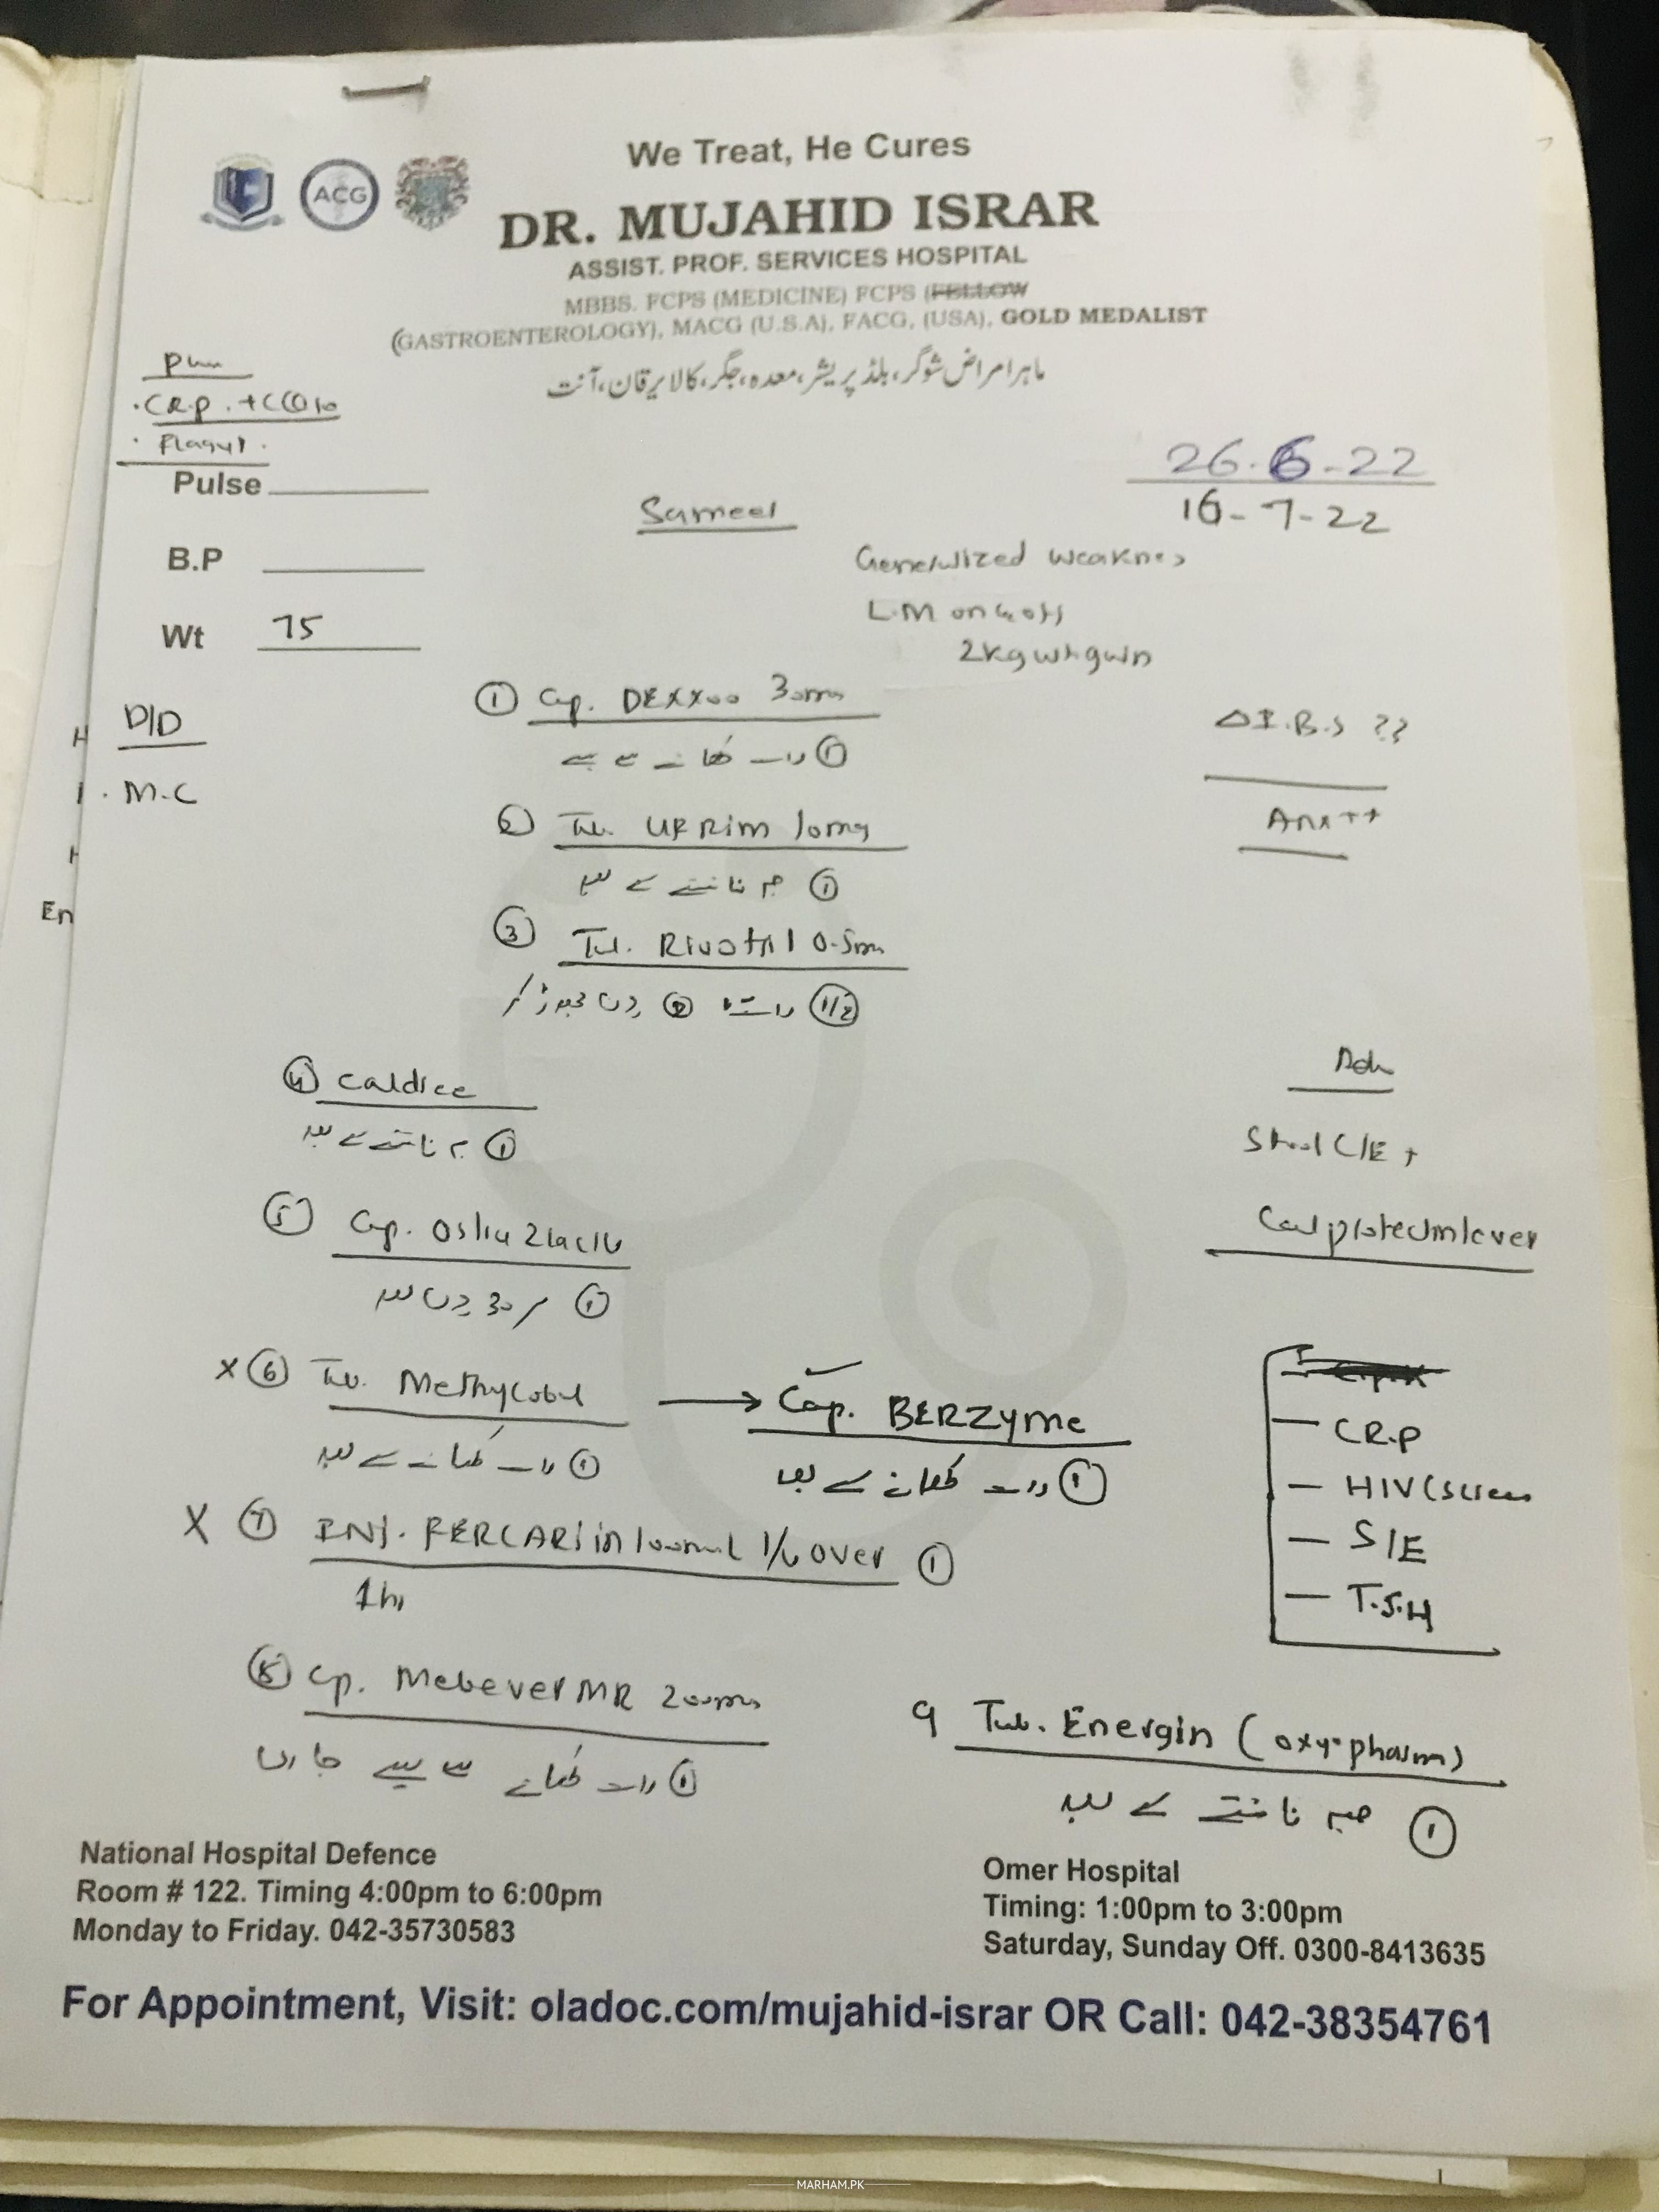 We Treat, He Cures
ACG
DR. MUJAHID ISRAR
ASSIST. PROF. SERVICES HOSPITAL
MBBS. FCPS (MEDICINE) FCPS (FELLOW
(GASTROENTEROLOGY), MACG (U.S.A), FACG, (USA), GOLD MEDALIST
ماہر امراض شوگر، بلڈ پریشر، معدہ، جگر، کالا یرقان، آنت
C.R.P.
Flagyl.
26.6-22
16-7-22
Pulse
Sameel
B.P
Generalized Weakness
L.M on & off
2kg wt gain
Wt 75
D/D
H
M.C
① Cap. DEXXoo 30mg
① رات کھانے سے پہلے
Δ I.B.S ??
Anx ++
② Tab. UFRim 10mg
① صبح ناشتے کے بعد
En
③ Tab. Rivotril 0.5mg
1/2 رات ② دن چھوڑ کر
④ Caldree
① صبح ناشتے کے بعد
Adv
Stool C/E +
Calprotectin level
⑤ Cap. Oslia 2lac IU
① ہر 30 دن بعد
X ⑥ Tab. Methycobal → Cap. BERZyme
① رات کھانے کے بعد
① رات کھانے کے بعد
— CR.P
— HIV (Screen
— S/E
— T.S.H
X ⑦ INJ. FERCARI in 100ml I/V over ①
1hr
⑧ Cap. Mebever MR 200mg
① رات کھانے سے پہلے جاری
9 Tab. Energin (oxy-pharm)
① صبح ناشتے کے بعد
National Hospital Defence
Room # 122. Timing 4:00pm to 6:00pm
Monday to Friday. 042-35730583
Omer Hospital
Timing: 1:00pm to 3:00pm
Saturday, Sunday Off. 0300-8413635
For Appointment, Visit: oladoc.com/mujahid-israr OR Call: 042-38354761
MARHAM.PK